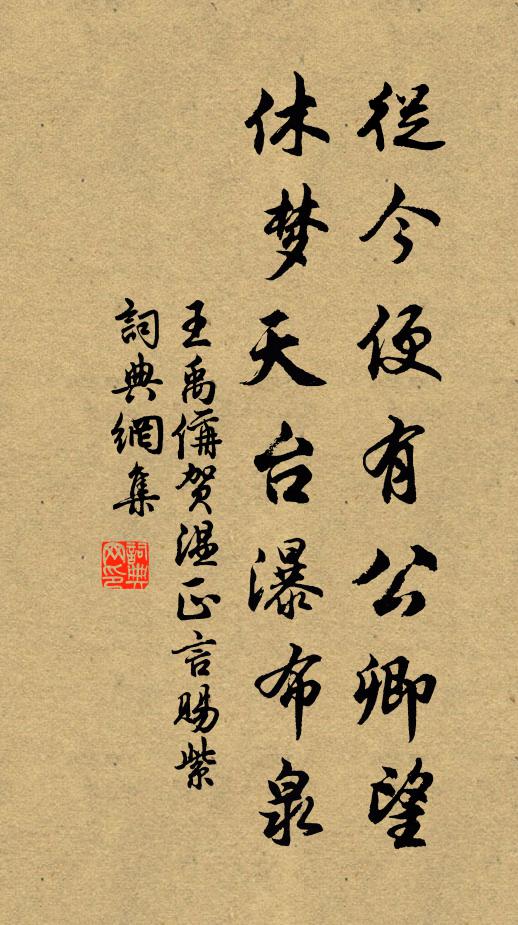 從今便有公卿望
休梦天台瀑布泉
王禹偁贺温正言賜紫
詞典網集
詞典网印